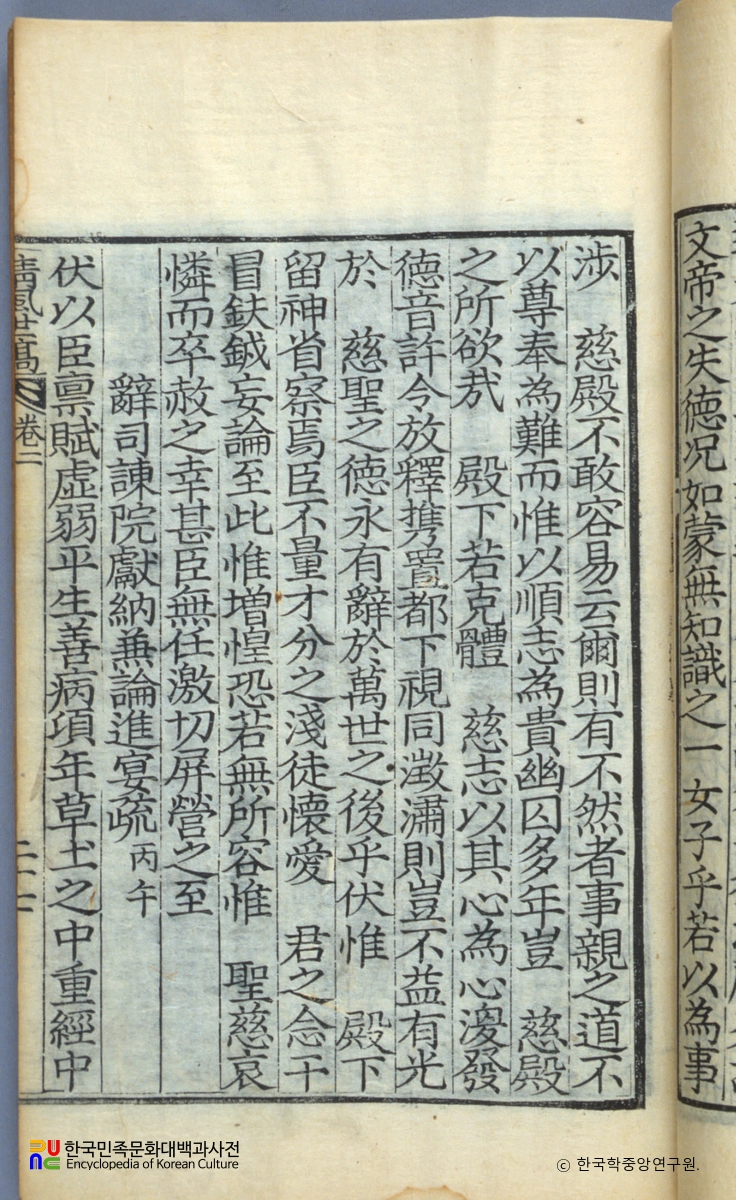 文帝之失德况如蒙無知識之一 女子乎若以為事
涉 慈殿不敢容易云爾則有不然者事親之道不
以尊奉為難而惟以順志為貴幽囚多年豈 慈殿
之所欲㢤 殿下若克體 慈志以其心為心邊發
德音許令放釋携置都下視同澂潚則豈不益有光
於 慈聖之德永有辭於萬世之後乎伏惟 殿下
留神省察焉臣不量才分之淺徒懷愛 君之念干
冒鈇鉞妄論至此惟增惶恐若無所容惟 聖慈哀
憐而卒赦之幸甚臣無任激切屏營之至
辭司諫院獻納兼論進宴疏 丙午
伏以臣禀賦虛弱平生善病項年草土之中重經中
清風世稿 卷二
한국민족문화대백과사전
Encyclopedia of Korean Culture
© 한국학중앙연구원.